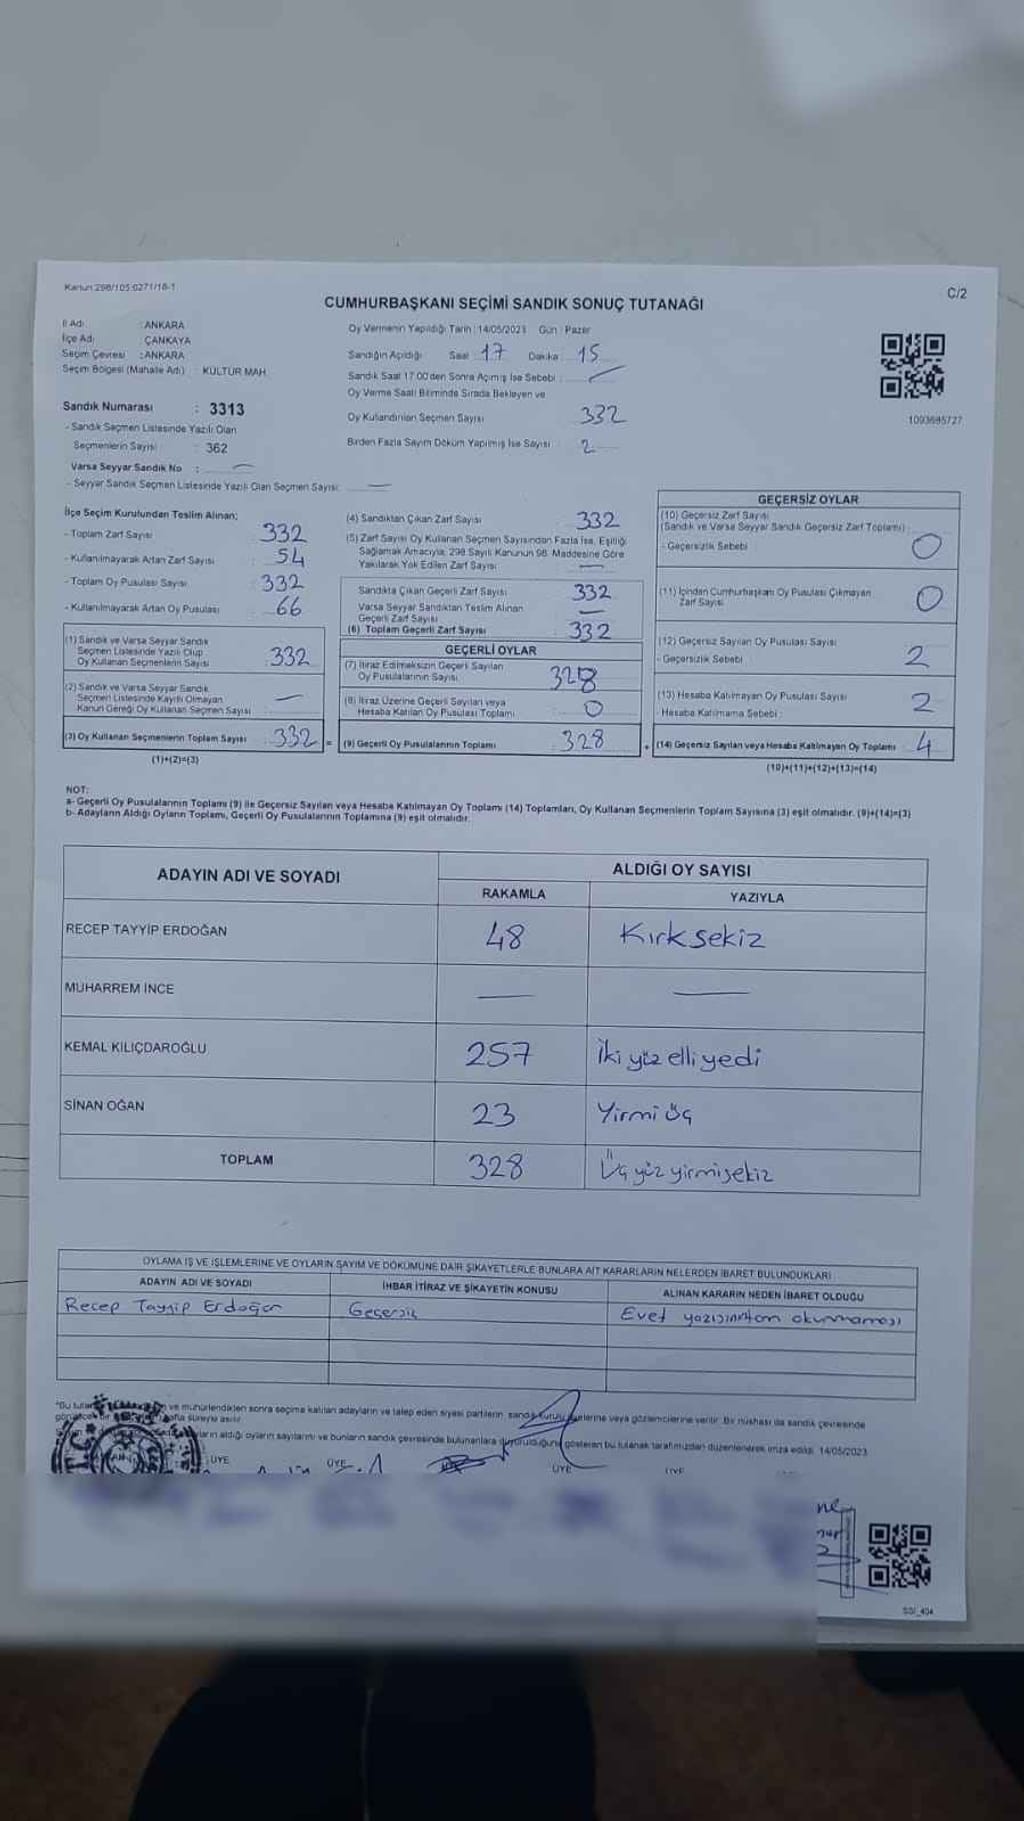 Kanun:298/105:0271/16-1
C/2
CUMHURBAŞKANI SEÇİMİ SANDIK SONUÇ TUTANAĞI
İl Adı : ANKARA
İlçe Adı : ÇANKAYA
Seçim Çevresi : ANKARA
Seçim Bölgesi (Mahalle Adı) : KÜLTÜR MAH.
Oy Vermenin Yapıldığı Tarih : 14/05/2023 Gün : Pazar
Sandığın Açıldığı Saat : 17 Dakika : 15
Sandık Saat 17:00'den Sonra Açılmış İse Sebebi :
Oy Verme Saati Bitiminde Sırada Bekleyen ve
Oy Kullandırılan Seçmen Sayısı 332
Birden Fazla Sayım Döküm Yapılmış İse Sayısı : 2
1093695727
Sandık Numarası : 3313
- Sandık Seçmen Listesinde Yazılı Olan
Seçmenlerin Sayısı : 362
Varsa Seyyar Sandık No : —
- Seyyar Sandık Seçmen Listesinde Yazılı Olan Seçmen Sayısı: —
İlçe Seçim Kurulundan Teslim Alınan;
- Toplam Zarf Sayısı : 332
- Kullanılmayarak Artan Zarf Sayısı : 54
- Toplam Oy Pusulası Sayısı : 332
- Kullanılmayarak Artan Oy Pusulası : 66
(1) Sandık ve Varsa Seyyar Sandık
Seçmen Listesinde Yazılı Olup
Oy Kullanan Seçmenlerin Sayısı : 332
(2) Sandık ve Varsa Seyyar Sandık
Seçmen Listesinde Kayıtlı Olmayan
Kanun Gereği Oy Kullanan Seçmen Sayısı —
(3) Oy Kullanan Seçmenlerin Toplam Sayısı : 332
(1)+(2)=(3)
(4) Sandıktan Çıkan Zarf Sayısı 332
(5) Zarf Sayısı Oy Kullanan Seçmen Sayısından Fazla İse, Eşitliği
Sağlamak Amacıyla, 298 Sayılı Kanunun 98. Maddesine Göre
Yakılarak Yok Edilen Zarf Sayısı —
Sandıkta Çıkan Geçerli Zarf Sayısı 332
Varsa Seyyar Sandıktan Teslim Alınan
Geçerli Zarf Sayısı —
(6) Toplam Geçerli Zarf Sayısı 332
GEÇERLİ OYLAR
(7) İtiraz Edilmeksizin Geçerli Sayılan
Oy Pusulalarının Sayısı 328
(8) İtiraz Üzerine Geçerli Sayılan veya
Hesaba Katılan Oy Pusulası Toplamı 0
= (9) Geçerli Oy Pusulalarının Toplamı 328
GEÇERSİZ OYLAR
(10) Geçersiz Zarf Sayısı
(Sandık ve Varsa Seyyar Sandık Geçersiz Zarf Toplamı) :
- Geçersizlik Sebebi : 0
(11) İçinden Cumhurbaşkanı Oy Pusulası Çıkmayan
Zarf Sayısı 0
(12) Geçersiz Sayılan Oy Pusulası Sayısı
- Geçersizlik Sebebi : 2
(13) Hesaba Katılmayan Oy Pusulası Sayısı
- Hesaba Katılmama Sebebi : 2
+ (14) Geçersiz Sayılan veya Hesaba Katılmayan Oy Toplamı 4
(10)+(11)+(12)+(13)=(14)
NOT:
a- Geçerli Oy Pusulalarının Toplamı (9) ile Geçersiz Sayılan veya Hesaba Katılmayan Oy Toplamı (14) Toplamları, Oy Kullanan Seçmenlerin Toplam Sayısına (3) eşit olmalıdır. (9)+(14)=(3)
b- Adayların Aldığı Oyların Toplamı, Geçerli Oy Pusulalarının Toplamına (9) eşit olmalıdır.
ADAYIN ADI VE SOYADI
ALDIĞI OY SAYISI
RAKAMLA YAZIYLA
RECEP TAYYİP ERDOĞAN 48 Kırksekiz
MUHARREM İNCE — —
KEMAL KILIÇDAROĞLU 257 İki yüz elli yedi
SİNAN OĞAN 23 Yirmi üç
TOPLAM 328 Üç yüz yirmi sekiz
OYLAMA İŞ VE İŞLEMLERİNE VE OYLARIN SAYIM VE DÖKÜMÜNE DAİR ŞİKAYETLERLE BUNLARA AİT KARARLARIN NELERDEN İBARET BULUNDUKLARI
ADAYIN ADI VE SOYADI İHBAR İTİRAZ VE ŞİKAYETİN KONUSU ALINAN KARARIN NEDEN İBARET OLDUĞU
Recep Tayyip Erdoğan Geçersiz Evet yazısının tam okunmaması
ve mühürlendikten sonra seçime katılan adayların ve talep eden siyasi partilerin, sandık kurulu üyelerine veya gözlemcilerine verilir. Bir nüshası da sandık çevresinde
süreyle asılır.
aldığı oyların sayılarını ve bunların sandık çevresinde bulunanlara duyurulduğunu gösteren bu tutanak tarafımızdan düzenlenerek imza edildi. 14/05/2023
ÜYE ÜYE ÜYE ÜYE